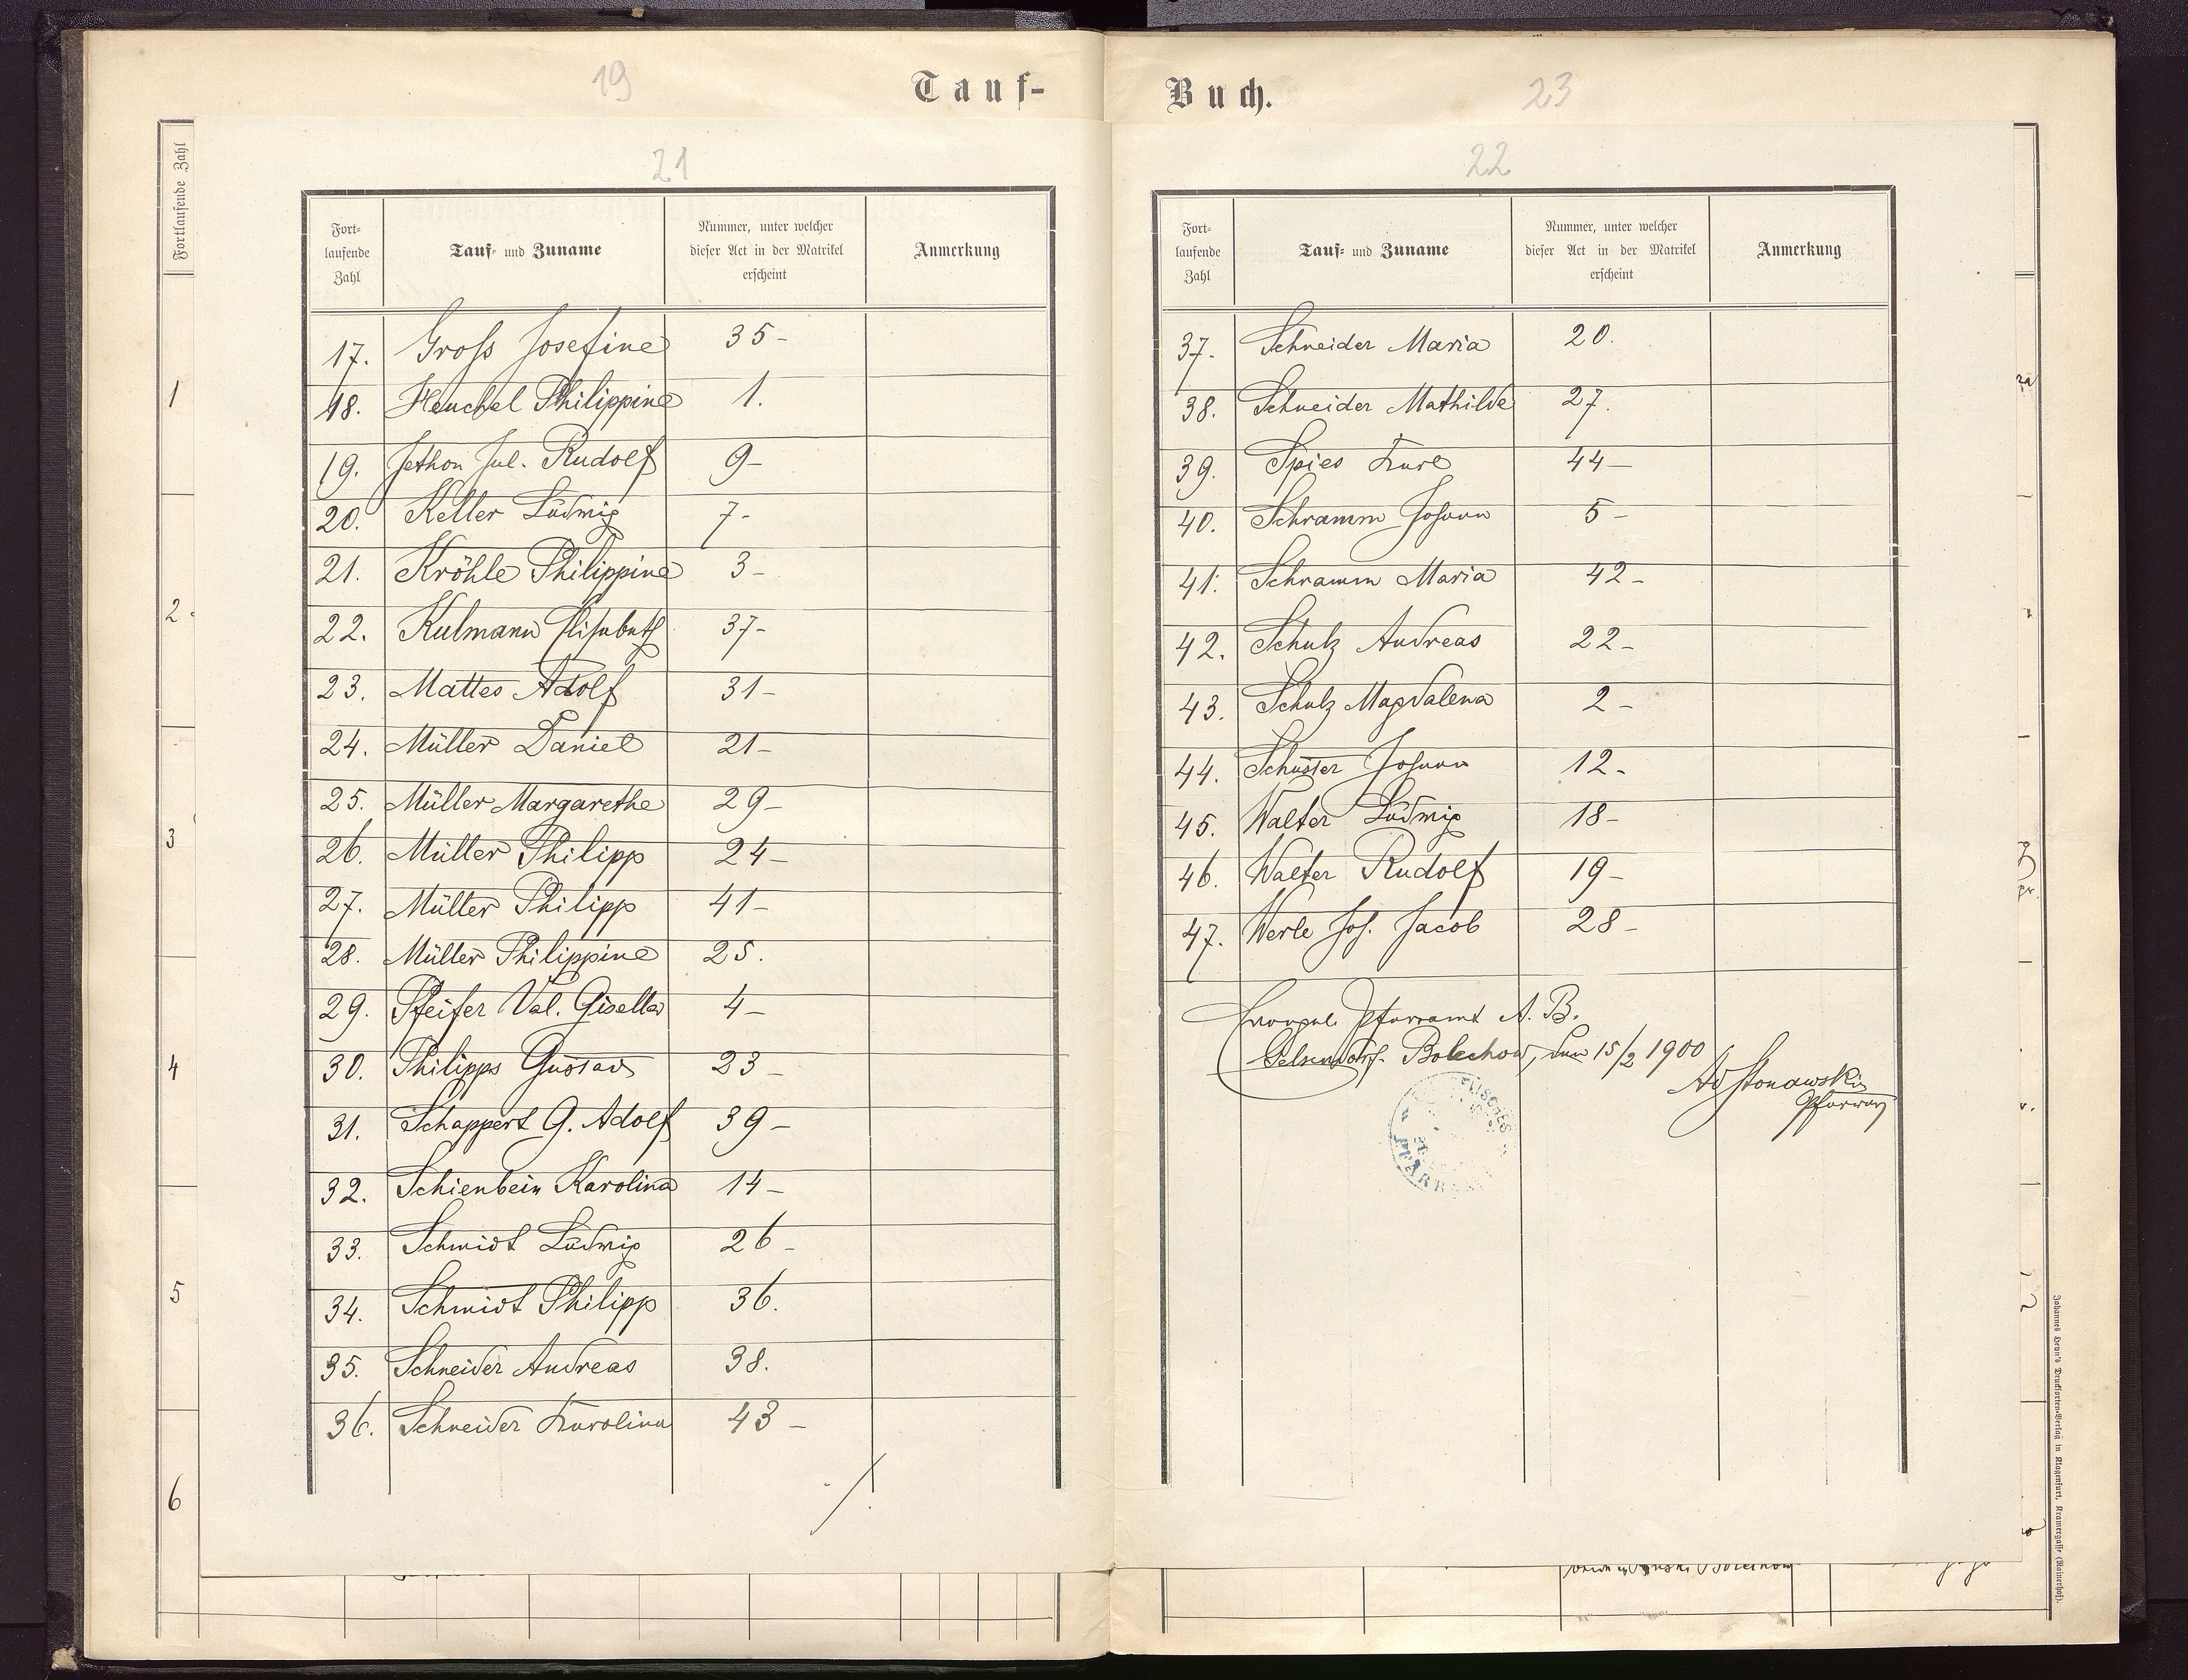 19
Tauf-
Fortlaufende Zahl
1
2
3
4
5
6
21
Fort-
laufende
Zahl
Tauf- und Zuname
Nummer, unter welcher
dieser Act in der Matrikel
erscheint
Anmerkung
17. Gross Josefine 35-
18. Heuchel Philippine 1.
19. Jethon Jul. Rudolf 9-
20. Keller Ludwig 7-
21. Kröhle Philippine 3-
22. Kulmann Elisabeth 37-
23. Mattes Adolf 31-
24. Müller Daniel 21-
25. Müller Margarethe 29-
26. Müller Philipp 24-
27. Müller Philipp 41-
28. Müller Philippine 25.
29. Pfeifer Val. Gisella 4-
30. Philipps Gustav 23-
31. Schappert G. Adolf 39-
32. Schienbein Karolina 14-
33. Schmidt Ludwig 26-
34. Schmidt Philipp 36.
35. Schneider Andreas 38.
36. Schneider Karolina 43-
./.
Buch.
23
22
Fort-
laufende
Zahl
Tauf- und Zuname
Nummer, unter welcher
dieser Act in der Matrikel
erscheint
Anmerkung
37. Schneider Maria 20.
38. Schneider Mathilde 27.
39. Spies Karl 44-
40. Schramm Johann 5-
41. Schramm Maria 42-
42. Schulz Andreas 22-
43. Schulz Magdalena 2-
44. Schuster Johann 12-
45. Walter Ludwig 18-
46. Walter Rudolf 19-
47. Werle Joh. Jacob 28-
Evangel. Pfarramt A. B.
Gelsendorf-Bolechow, den 15/2 1900
Ad Stonawski
Pfarrer
Johannes Heyn's Drucksorten-Verlag in Klagenfurt, Kramergasse (Rainerhof).